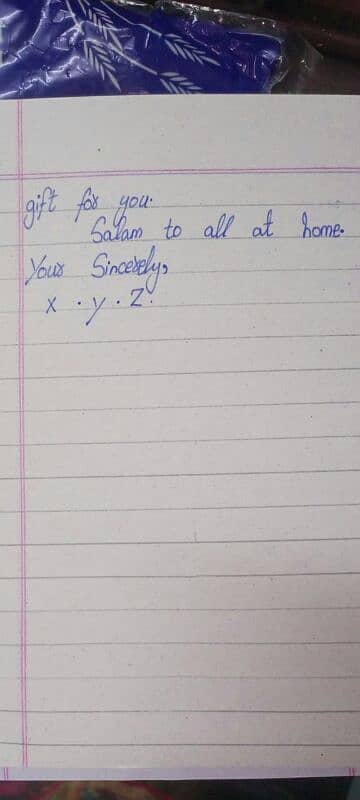 gift for you.
Salam to all at home.
Your Sincerely,
x . y . Z.